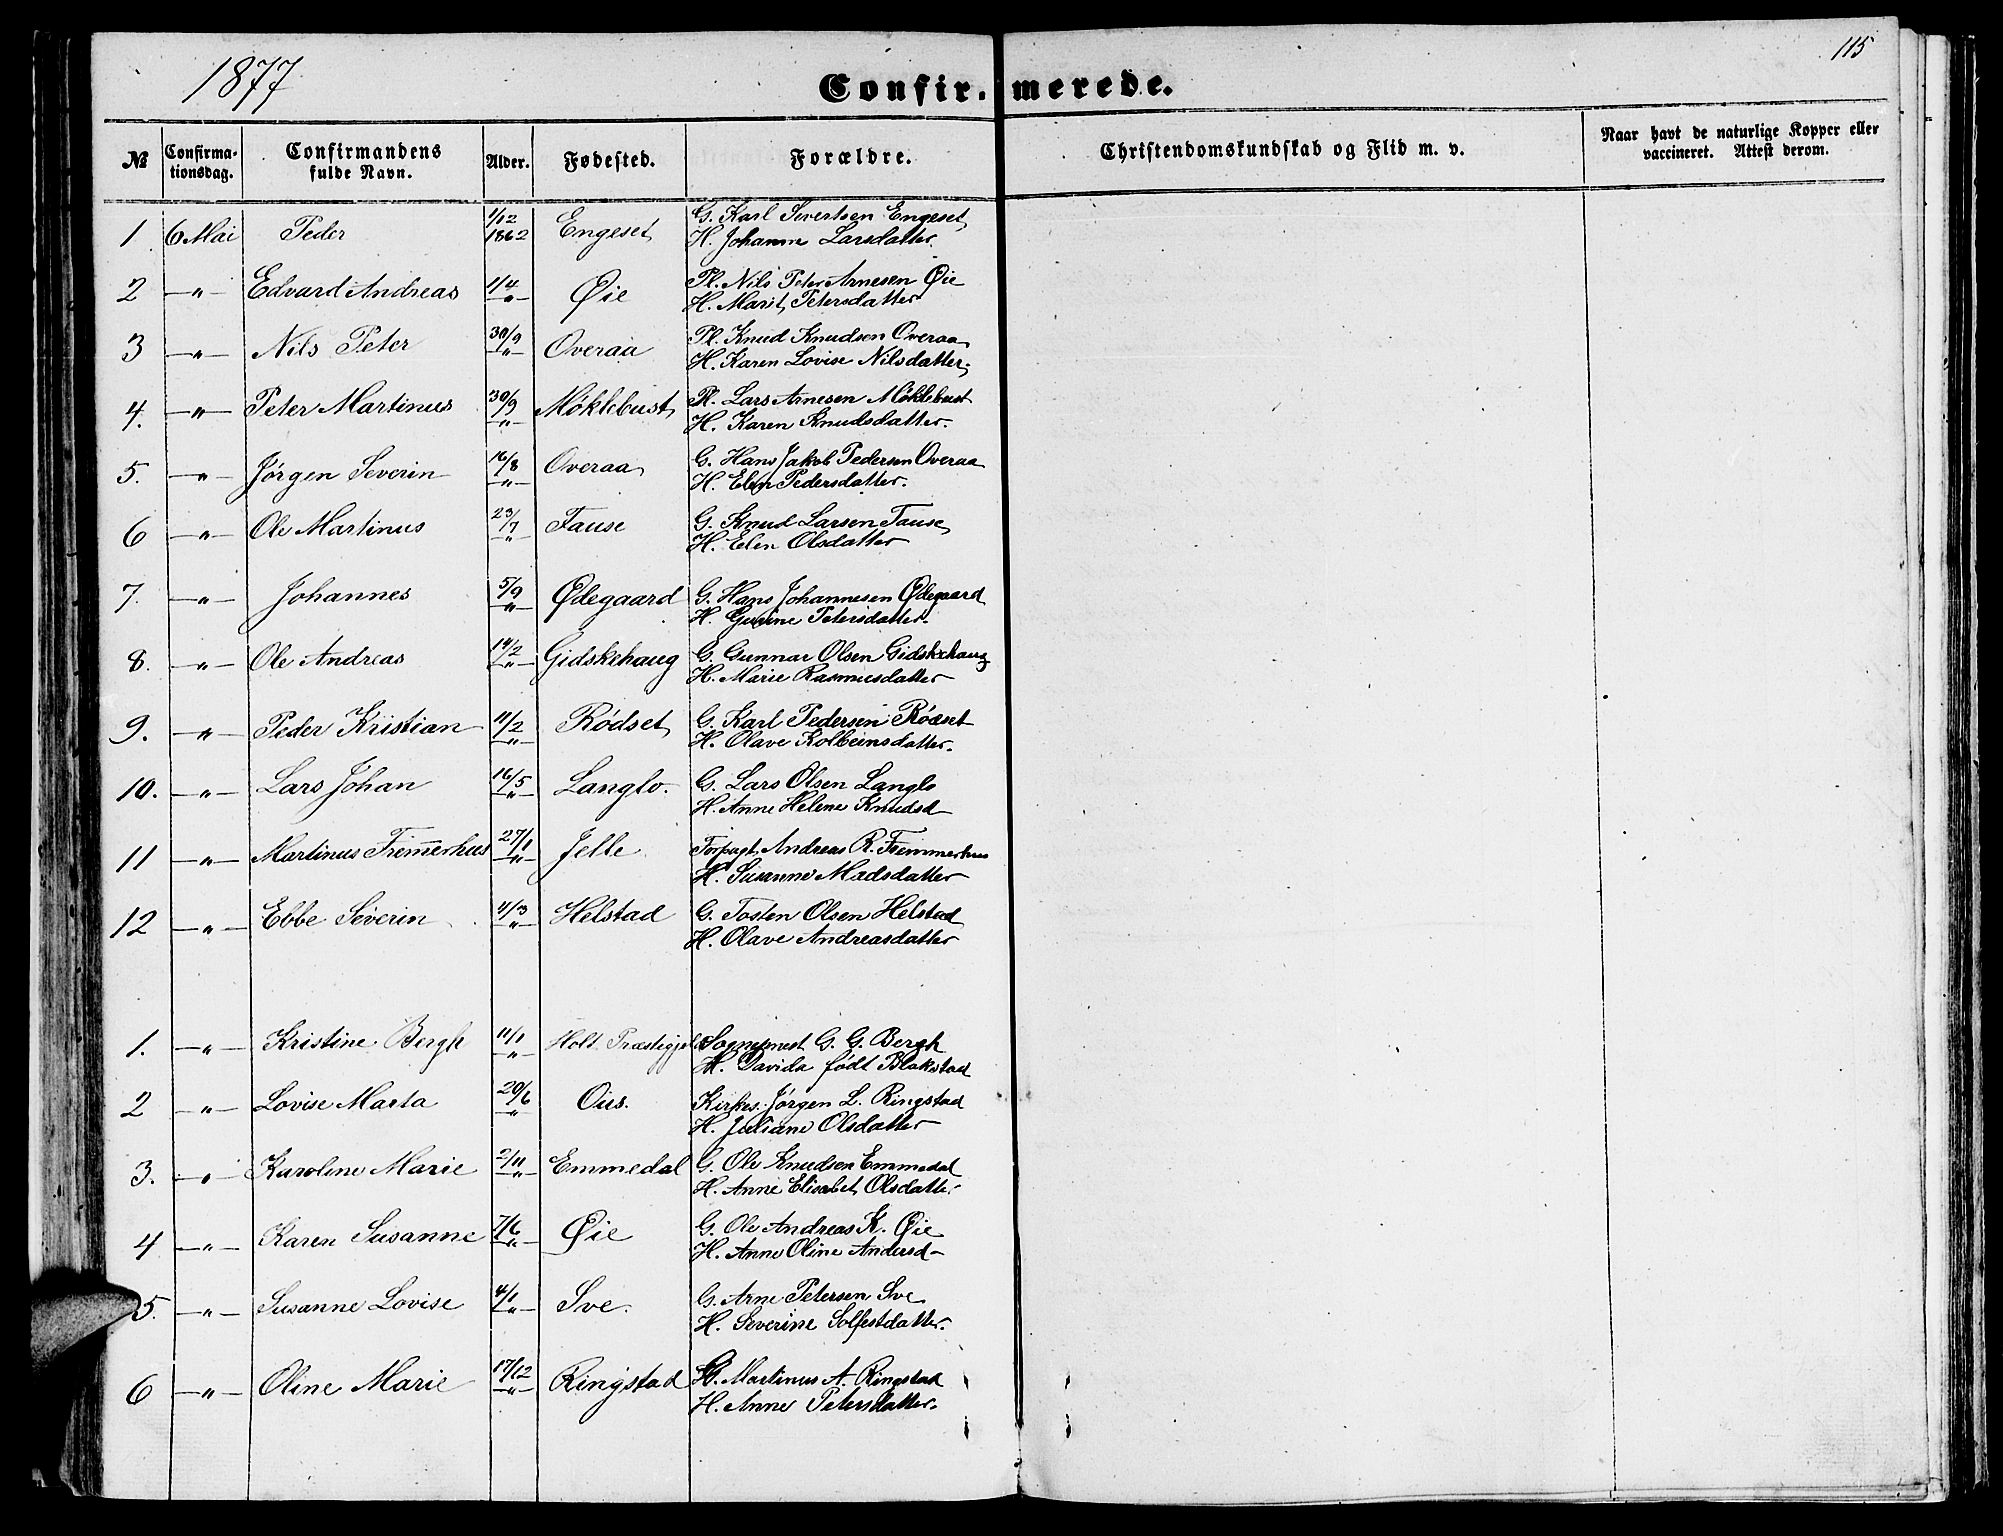 1877
115
Confirmerede.
№ Confirmationsdag. Confirmandens fulde Navn. Alder. Fødested. Forældre. Christendomskundskab og Flid m. v. Naar havt de naturlige Kopper eller vaccineret. Attest derom.
1 6 Mai Peder 1/12 1862 Engeset G. Karl Sivertsen Engeset
H. Johanne Larsdatter.
2 —„— Edvard Andreas 1/4 —„— Øie Pl. Nils Peter Arnesen Øie
H. Marit Petersdatter
3 —„— Nils Peter 30/9 —„— Overaa Pl. Knud Knudsen Overaa
H. Karen Lovise Nilsdatter.
4. —„— Peter Martinus 30/9 —„— Møklebust Pl. Lars Arnesen Møklebust
H. Karen Knudsdatter.
5. —„— Jørgen Severin 16/8 —„— Overaa G. Hans Jakob Pedersen Overaa
H. Elen Pedersdatter.
6 —„— Ole Martinus 23/7 —„— Fause G. Knud Larsen Fause
H. Elen Olsdatter
7. —„— Johannes 5/9 —„— Ødegaard G. Hans Johannesen Ødegaard
H. Petersdatter.
8. —„— Ole Andreas 14/2 —„— Gidskehaug G. Gunnar Olsen Gidskehaug
H. Marie Rasmusdatter
9. —„— Peder Kristian 11/2 —„— Rødset G. Karl Pedersen Rødset
H. Olave Kolbeinsdatter.
10. —„— Lars Johan 16/5 —„— Langlo. G. Lars Olsen Langlo
H. Anne Helene Knudsd
11 —„— Martinus Fremmerhus 27/1 —„— Jelle Forpagt. Andreas R. Fremmerhus
H. Susanne Madsdatter
12 —„— Ebbe Severin 4/3 —„— Helstad G. Tosten Olsen Helstad
H. Olave Andreasdatter
1. —„— Kristine Bergh 11/1 —„— Holt Præstegjeld Sogneprest G. G. Bergh
H. Davida født Blakstad
2 —„— Lovise Marta 20/6 —„— Ous. Kirkes. Jørgen L. Ringstad
H. Juliane Olsdatter
3. „ Karoline Marie 2/11 —„— Emmedal G. Ole Knudsen Emmedal
H. Anne Elisabet Olsdatter
4 —„— Karen Susanne 7/6 —„— Øie G. Ole Andreas K. Øie
H. Anne Oline Andersd—
5. —„— Susanne Lovise 4/1 —„— Sve. G. Arne Petersen Sve
H. Severine Solfestdatter.
6 —„— Oline Marie 17/12 —„— Ringstad G. Martinus A. Ringstad
H. Anne Petersdatter.